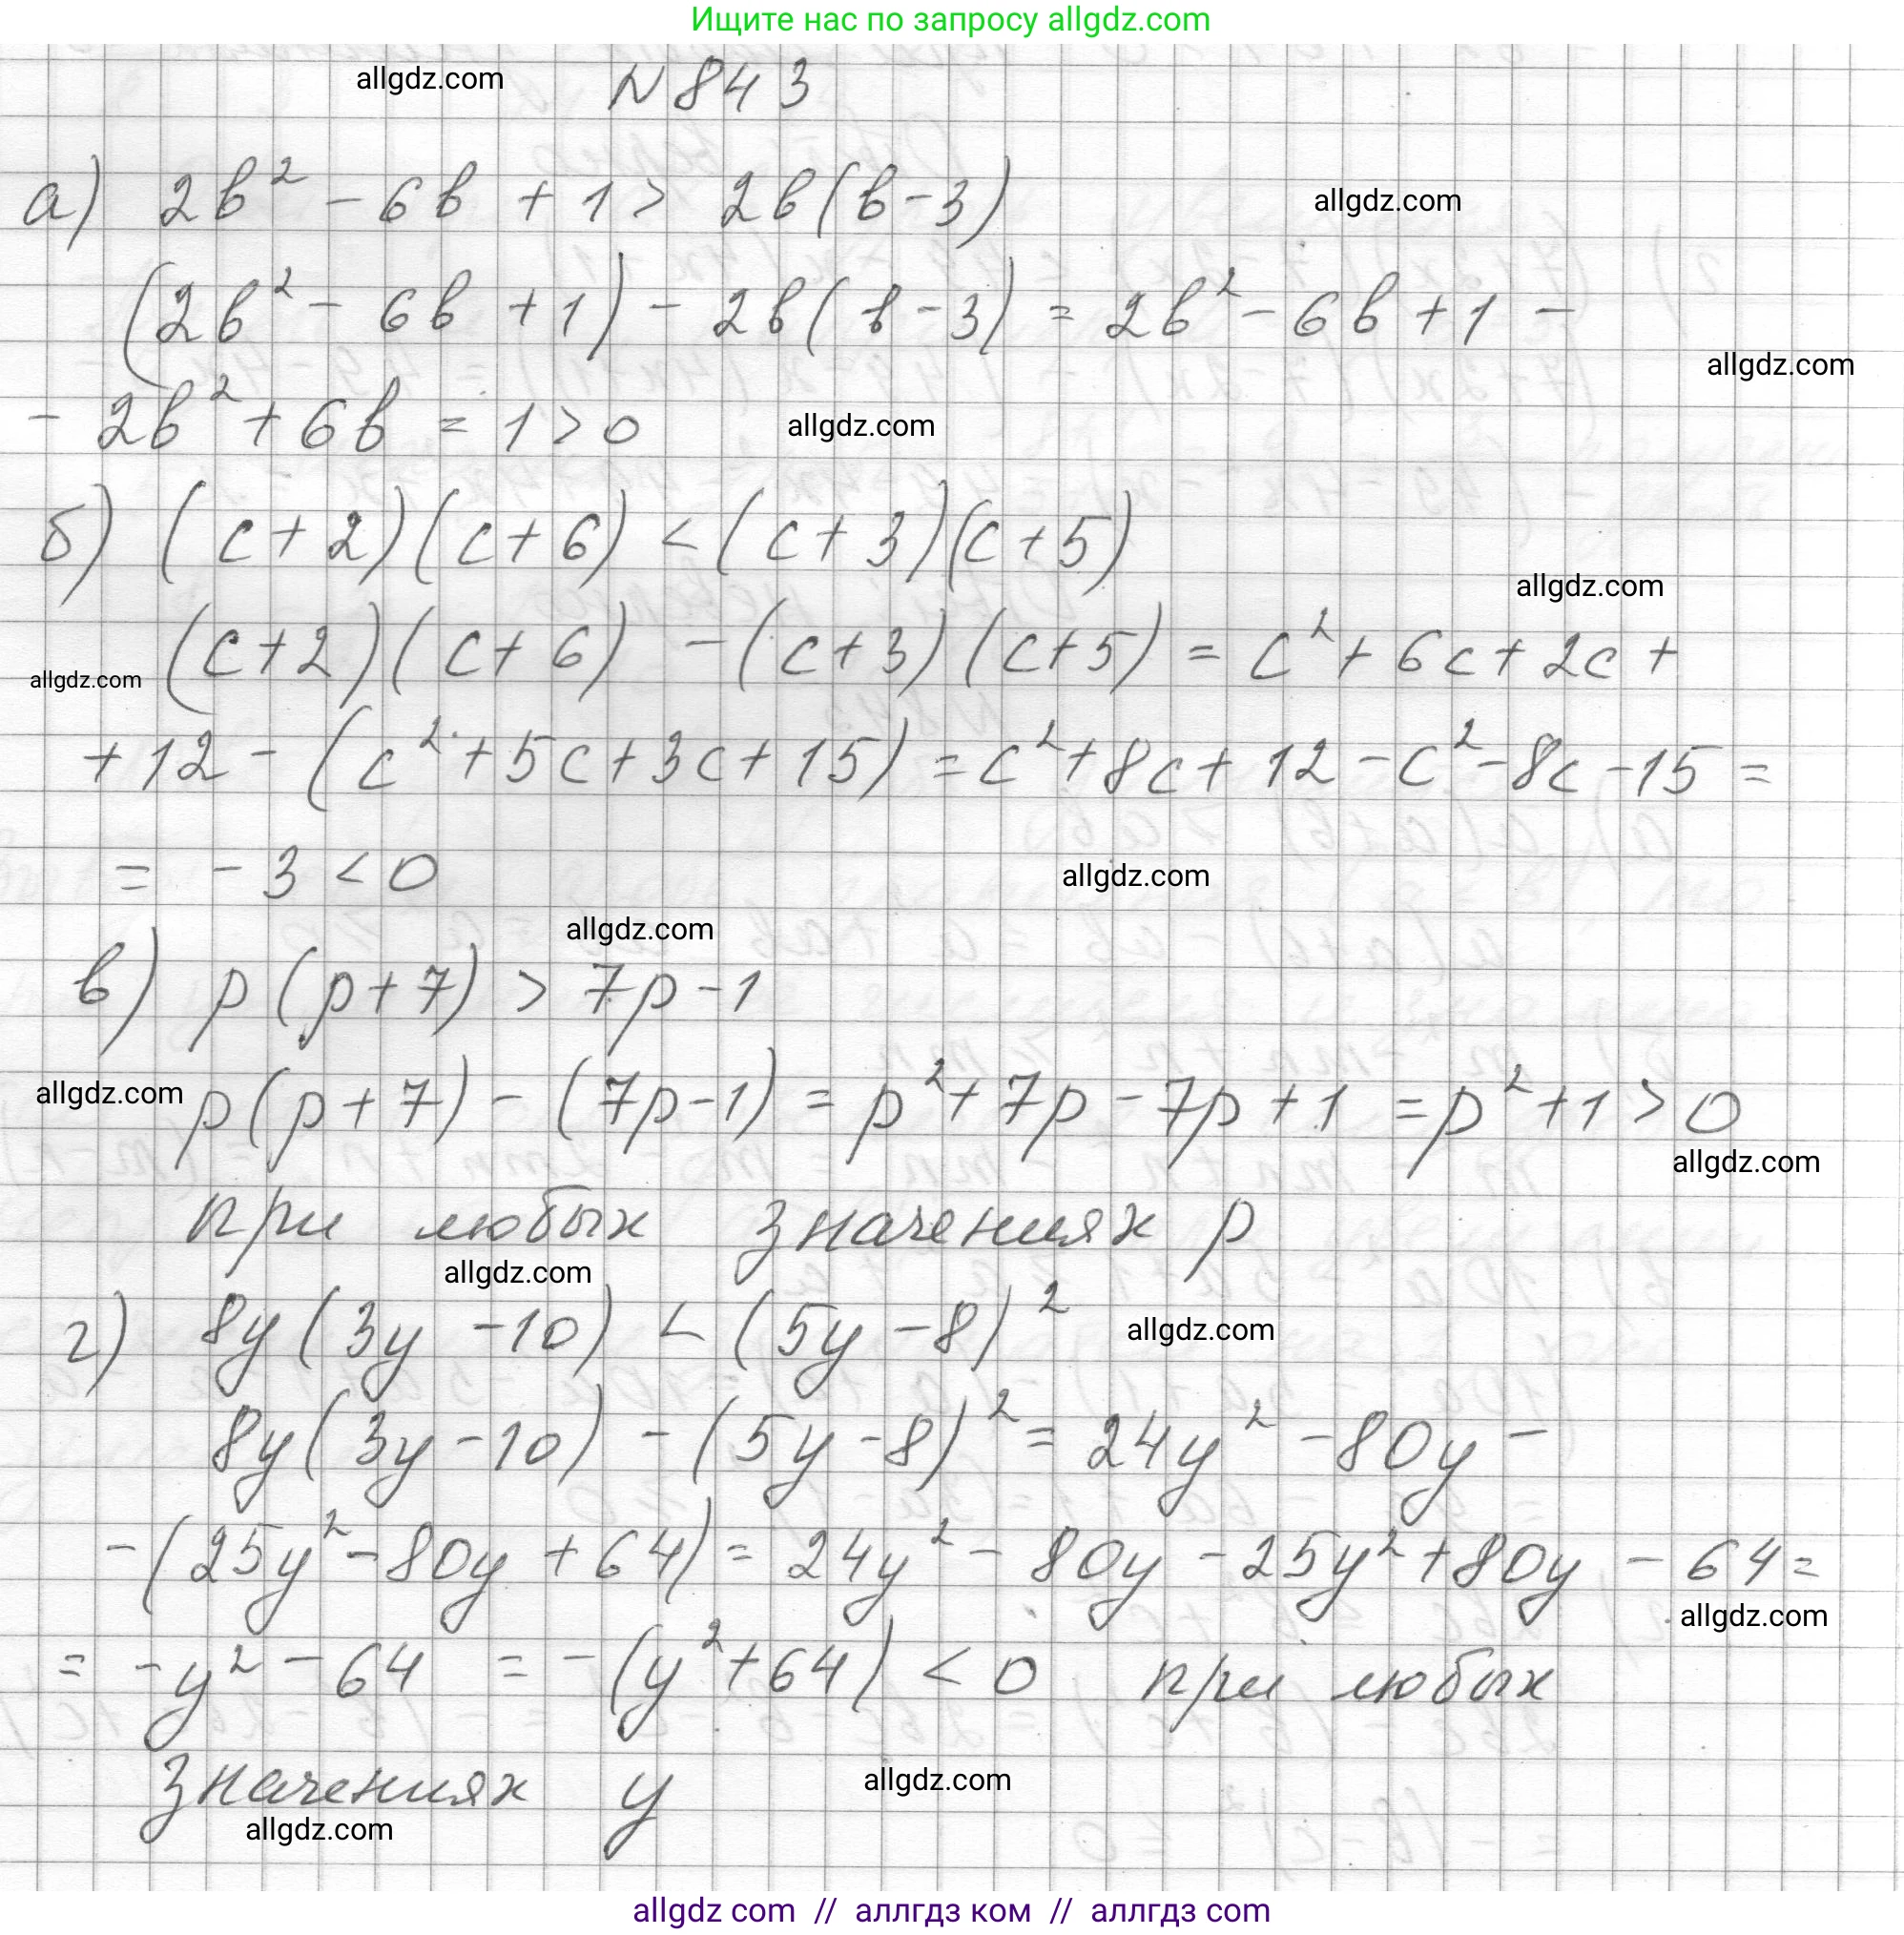 Ищите нас по запросу allgdz.com
allgdz.com N 843
а) 2b² - 6b + 1 > 2b(b-3) allgdz.com
(2b² - 6b + 1) - 2b(b-3) = 2b² - 6b + 1 -
allgdz.com
- 2b² + 6b = 1 > 0 allgdz.com
б) (c+2)(c+6) < (c+3)(c+5)
allgdz.com
allgdz.com (c+2)(c+6) - (c+3)(c+5) = c² + 6c + 2c +
+ 12 - (c² + 5c + 3c + 15) = c² + 8c + 12 - c² - 8c - 15 =
= - 3 < 0 allgdz.com
allgdz.com
в) p(p+7) > 7p - 1
allgdz.com p(p+7) - (7p-1) = p² + 7p - 7p + 1 = p² + 1 > 0
allgdz.com
при любых значениях p
allgdz.com
г) 8y(3y - 10) < (5y - 8)² allgdz.com
8y(3y - 10) - (5y - 8)² = 24y² - 80y -
- (25y² - 80y + 64) = 24y² - 80y - 25y² + 80y - 64 =
allgdz.com
= - y² - 64 = - (y² + 64) < 0 при любых
значениях y allgdz.com
allgdz.com
allgdz com // аллгдз ком // аллгдз com